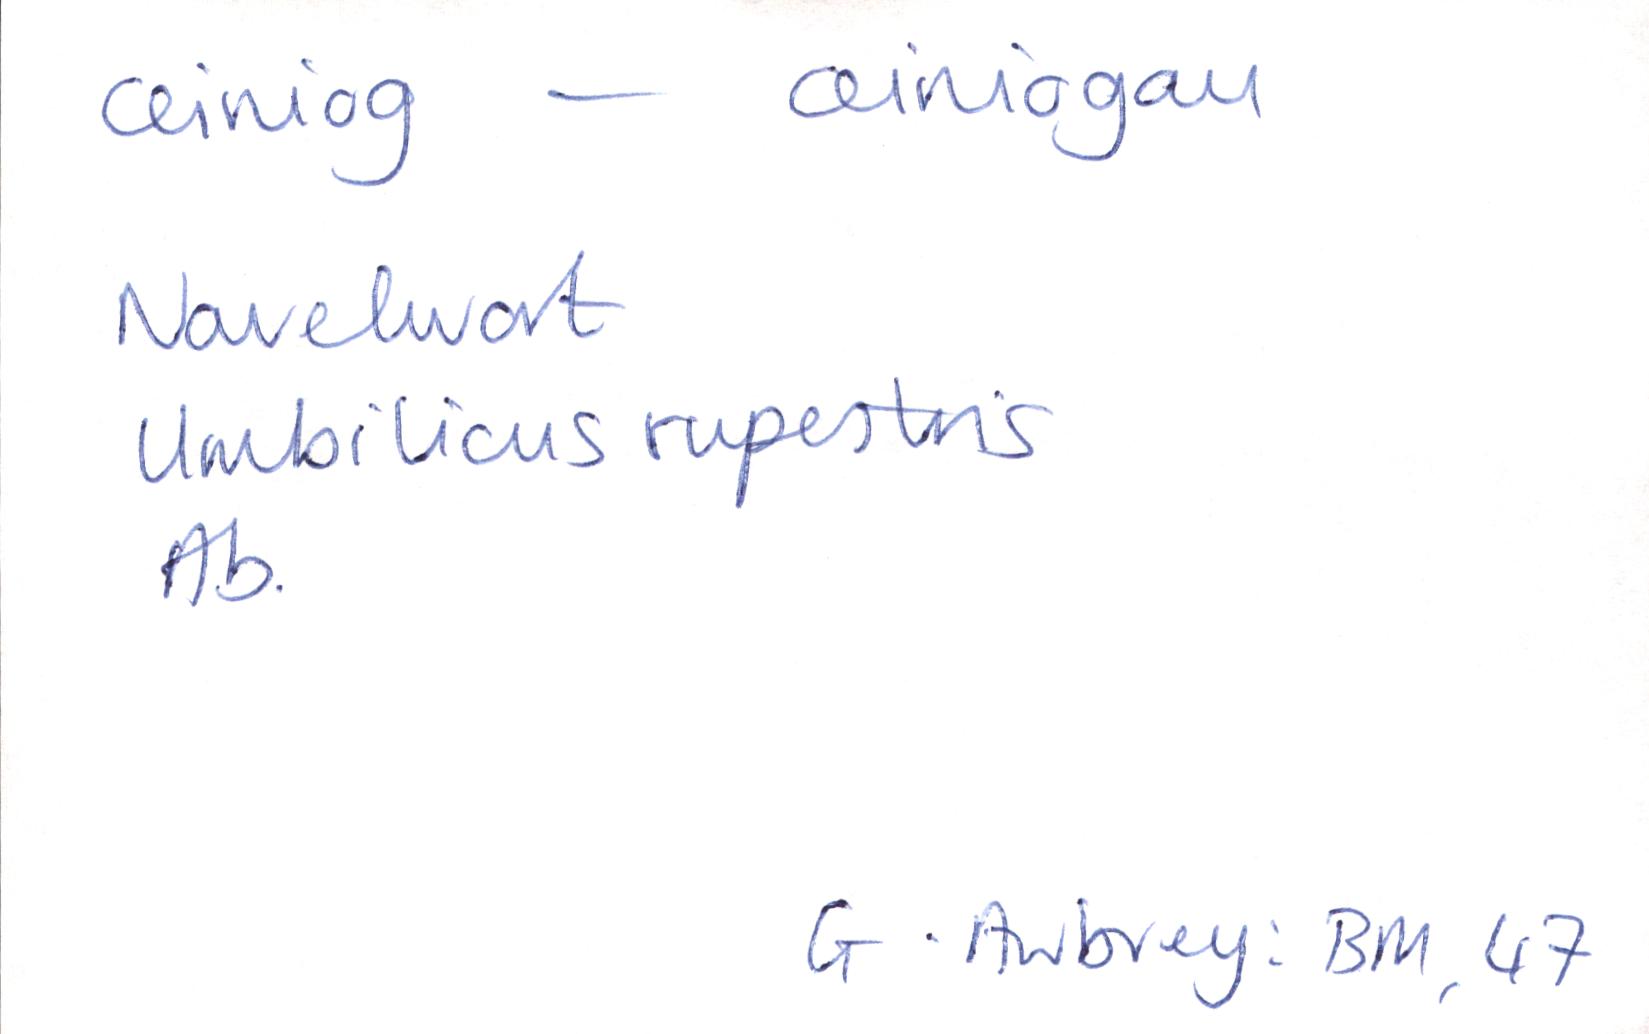 ceiniog — ceiniogau
Navelwort
Umbilicus rupestris
Ab.
G. Awbrey: BM, 47